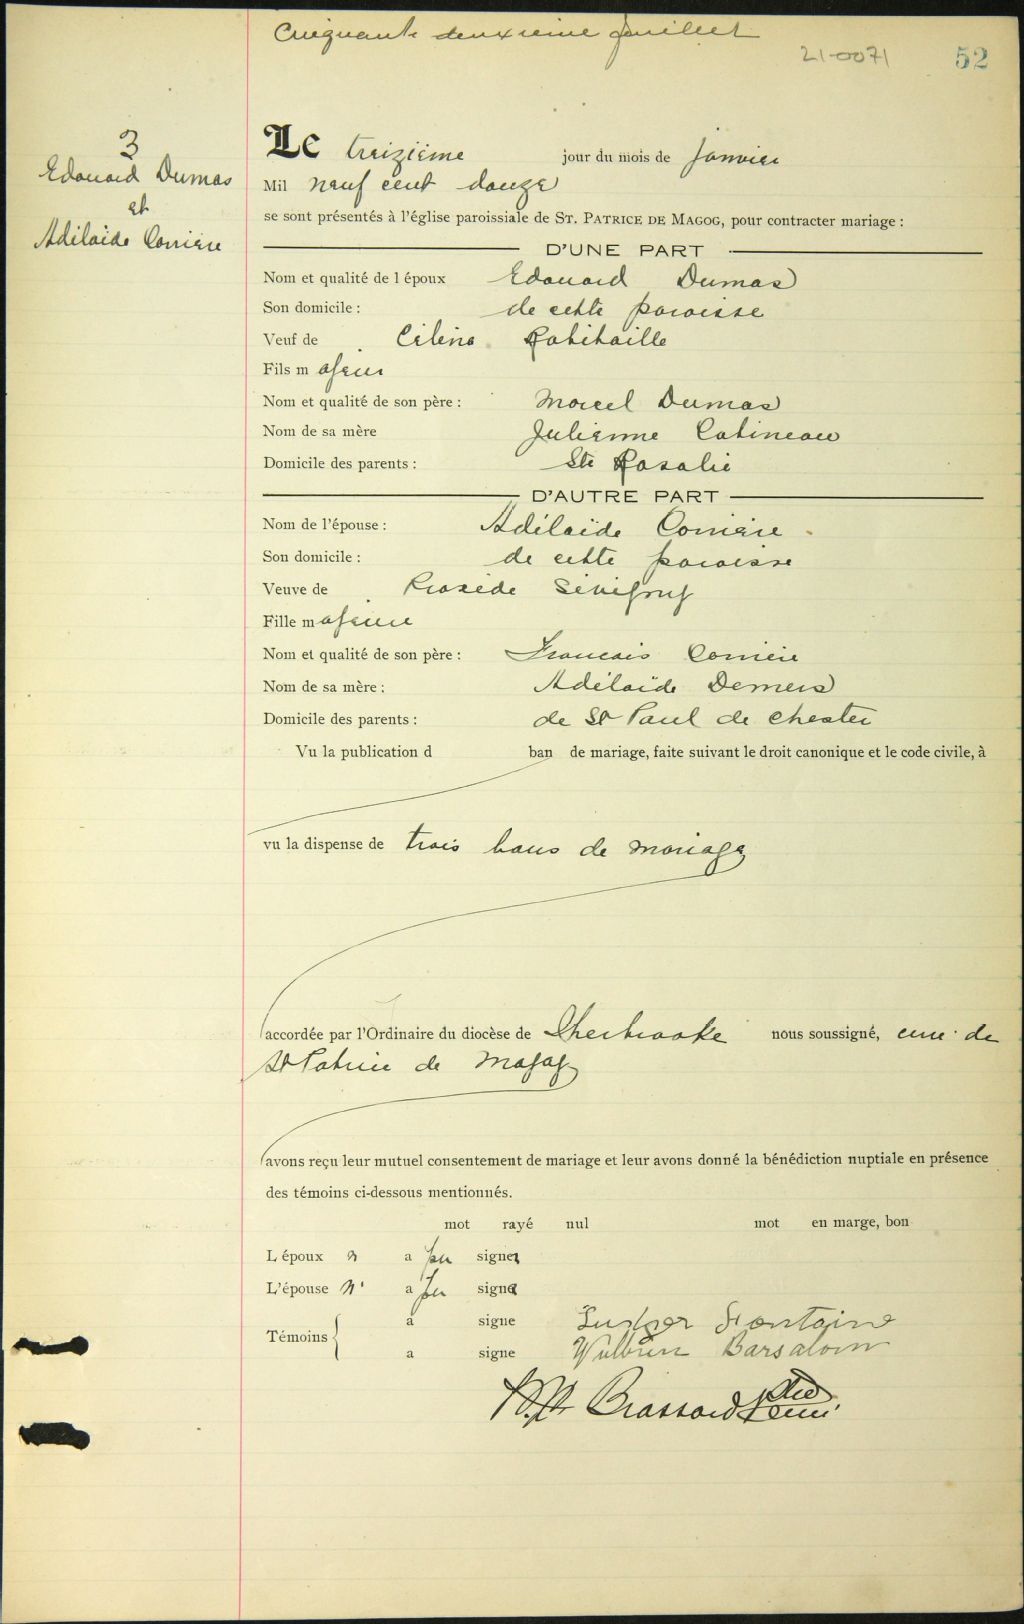 Cinquante deuxieme feuillet
21-0071
52
3
Edouard Dumas
et
Adélaïde Corriere
Le treizième jour du mois de janvier
Mil neuf cent douze
se sont présentés à l'église paroissiale de ST. PATRICE DE MAGOG, pour contracter mariage :
D'UNE PART
Nom et qualité de l époux Edouard Dumas
Son domicile : de cette paroisse
Veuf de Célina Robitaille
Fils majeur
Nom et qualité de son père : Marcel Dumas
Nom de sa mère Julienne Catineau
Domicile des parents : Ste Rosalie
D'AUTRE PART
Nom de l'épouse : Adélaïde Corriere
Son domicile : de cette paroisse
Veuve de Praxède Sévigny
Fille majeure
Nom et qualité de son père : Francois Corriere
Nom de sa mère : Adélaïde Demers
Domicile des parents : de St Paul de Chester
Vu la publication d ban de mariage, faite suivant le droit canonique et le code civile, à
vu la dispense de trois bans de mariage
accordée par l'Ordinaire du diocèse de Sherbrooke nous soussigné, curé de
St Patrice de Magog
avons reçu leur mutuel consentement de mariage et leur avons donné la bénédiction nuptiale en présence
des témoins ci-dessous mentionnés.
mot rayé nul mot en marge, bon
L époux n a pu signer
L'épouse n' a pu signer
Témoins { a signe Fontaine
a signe Barsalou
Brassard Ptre
curé